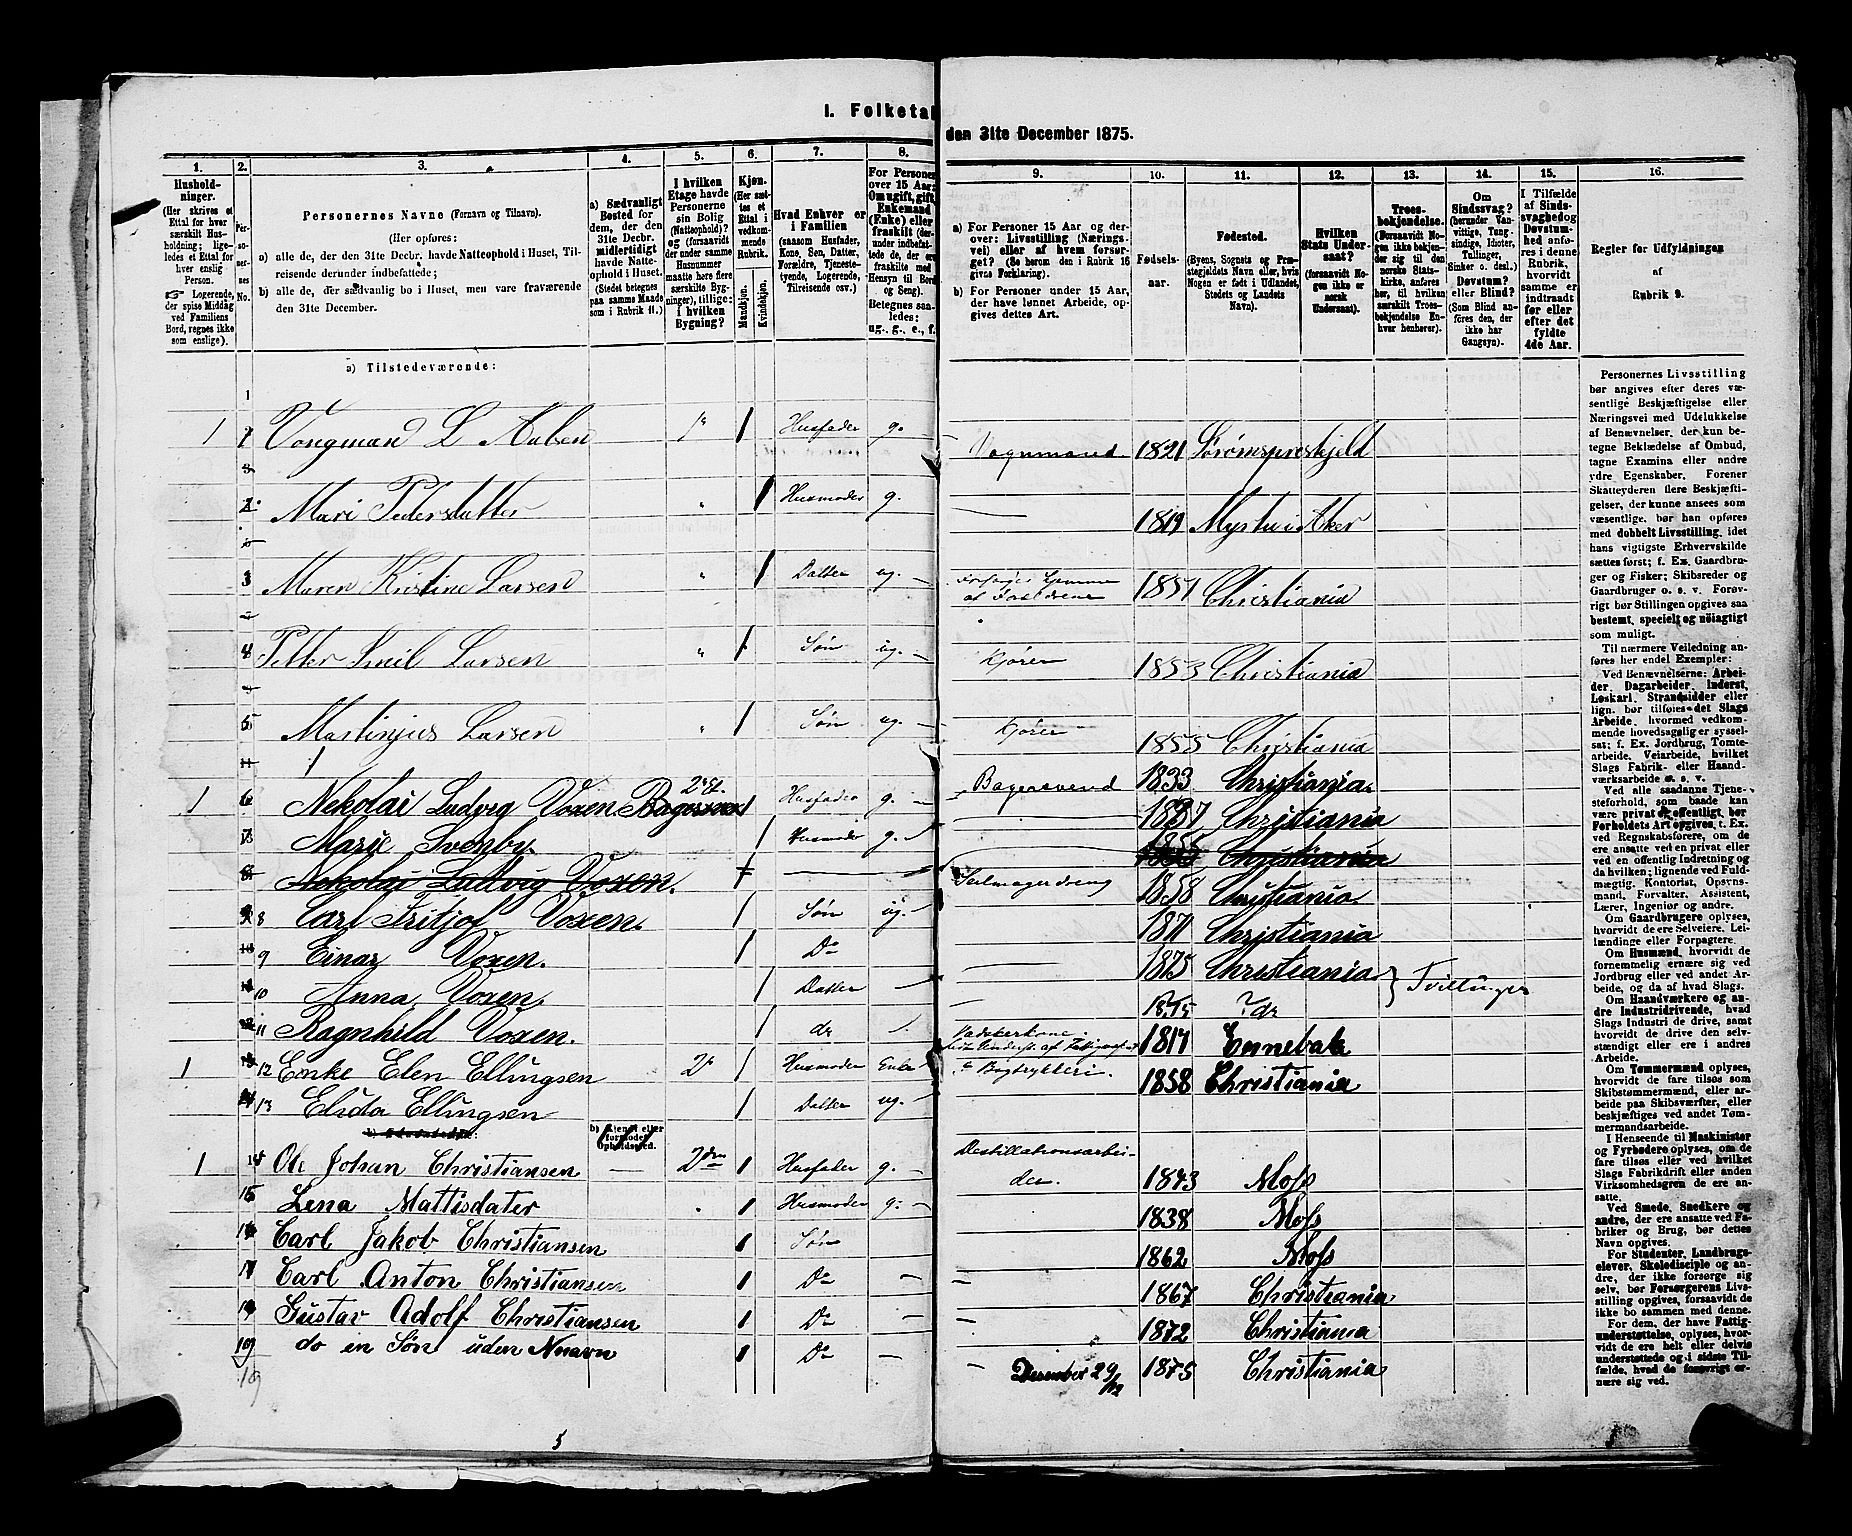 I. Folketal den 31te December 1875.
1. 2. 3. 4. 5. 6. 7. 8. 9. 10. 11. 12. 13. 14. 15. 16.
Husholdninger. (Her skrives et Ettal for hver særskilt Husholdning; ligeledes et Ettal for hver enslig Person. ☞ Logerende, der spise Middag ved Familiens Bord, regnes ikke som enslige).
Personernes No.
Personernes Navne (Fornavn og Tilnavn).
(Her opføres:
a) alle de, der den 31te Decbr. havde Natteophold i Huset, Tilreisende derunder indbefattede;
b) alle de, der sædvanlig bo i Huset, men vare fraværende den 31te December.
a) Sædvanligt Bosted for dem, der den 31te Decbr. midlertidigt havde Natteophold i Huset. (Stedet betegnes paa samme Maade som i Rubrik 11.)
I hvilken Etage havde Personerne sin Bolig (Natteophold)? og (forsaavidt der under samme Husnummer maatte høre flere særskilte Bygninger), tillige: i hvilken Bygning?
Kjøn. (Her sættes et Ettal i vedkommende Rubrik. Mandkjøn. Kvindekjøn.
Hvad Enhver er i Familien (saasom Husfader, Kone, Søn, Datter, Forældre, Tjenestetyende, Logerende, Tilreisende osv.)
For Personer over 15 Aar: Om ugift, gift, Enkemand (Enke) eller fraskilt (derunder indbefattede de, der ere fraskilte med Hensyn til Bord og Seng). Betegnes saaledes: ug., g., e., f.
a) For Personer 15 Aar og derover: Livsstilling (Næringsvei) eller af hvem forsørget? (Se herom den i Rubrik 16 givne Forklaring).
b) For Personer under 15 Aar, der have lønnet Arbeide, opgives dettes Art.
Fødselsaar.
Fødested. (Byens, Sognets og Præstegjeldets Navn eller, hvis Nogen er født i Udlandet, Stedets og Landets Navn).
Hvilken Stats Undersaat? (forsaavidt Nogen ikke er norsk Undersaat).
Troesbekjendelse. (Forsaavidt Nogen ikke bekjender sig til den norske Statskirke, anføres her, til hvilken særskilt Troesbekjendelse Enhver henhører).
Om Sindssvag? (herunder Vanvittige, Tungsindige, Idioter, Tullinger, Sinker o. desl.) Døvstum? eller Blind? (Som Blind anføres den, der ikke har Gangsyn).
I Tilfælde af Sindssvaghed og Døvstumhed anføres i denne Rubrik, hvorvidt samme er indtraadt før eller efter det fyldte 4de Aar.
Regler for Udfyldningen af Rubrik 9.
a) Tilstedeværende:
1 1 Vongmand L Aulsen 1ste Husfader g. Vognmand 1821 Sørumspræstkjeld
2 Mari Pedersdatter Husmoder g. 1819 i Aker
3 Maren Kristine Larsen Datter ug. af Forældrene 1851 Christiania
4 Petter Emil Larsen Søn ug. Kjører 1853 Christiania
5 Martinjus Larsen Søn ug. Kjører 1855 Christiania
1 6 Nekolai Ludvig Voxen Bagersvend 2 Et. Husfader g. Bagersvend 1833 Christiania
7 Marie Svenby Husmoder g. 1837 Christiania
8 Nekolai Ludvig Voxen. Christiania
8 Carl Fritjof Voxen. Søn ug. Seilmagerdreng 1858 Christiania
9 Einar Voxen. Do 1871 Christiania
10 Anna Voxen. Datter 1875 Christiania } Tvillinger
11 Ragnhild Voxen. do 1875 do
1 12 Enke Elen Ellingsen 2 Husmoder Enke 1817 Ennebak
13 Elida Ellingsen Datter ug. Bogtrykkeri. 1858 Christiania
b) Fraværende:
b) Kjendt eller formodet Opholdssted.
1 14 Ole Johan Christiansen 2den Husfader g. Destillationsarbeider. 1843 Moss
15 Lena Mattisdater Husmoder g. 1838 Moss
16 Carl Jakob Christiansen Søn 1862 Moss
17 Carl Anton Christiansen Do 1867 Christiania
18 Gustav Adolf Christiansen Do 1872 Christiania
19 do en Søn uden Navn Do December 29/12 1875 Christiania
19
5
Personernes Livsstilling bør angives efter deres væsentlige Beskjæftigelse eller Næringsvei med Udelukkelse af Benævnelser, der kun betegne Beklædelse af Ombud, tagne Examina eller andre ydre Egenskaber. Forener Skatteyderen flere Beskjæftigelser, der kunne ansees som væsentlige, bør han opføres med dobbelt Livsstilling, idet hans vigtigste Erhvervskilde sættes først; f. Ex. Gaardbruger og Fisker; Skibsreder og Gaardbruger o. s. v. Forøvrigt bør Stillingen opgives saa bestemt, specielt og nøiagtigt som muligt.
Til nærmere Veiledning anføres her endel Exempler:
Ved Benævnelserne: Arbeider, Dagarbeider, Inderst, Løskarl, Strandsidder eller lign. bør tilføres det Slags Arbeide, hvormed vedkommende hovedsagelig er sysselsat; f. Ex. Jordbrug, Tomtearbeide, Veiarbeide, hvilket Slags Fabrik- eller Haandværksarbeide o. s. v.
Ved alle saadanne Tjenesteforhold, som baade kan være privat og offentligt, bør Forholdets Art opgives, t. Ex. ved Regnskabsførere, om de ere ansatte ved en privat eller ved en offentlig Indretning og da hvilken; lignende ved Fuldmægtig, Kontorist, Opsynsmand, Forvalter, Assistent, Lærer, Ingeniør og andre.
Om Gaardbrugere oplyses, hvorvidt de ere Selveiere, Leilændinge eller Forpagtere.
Om Husmænd, hvorvidt de fornemmelig ernære sig ved Jordbrug eller ved andet Arbeide, og da af hvad Slags.
Om Haandværkere og andre Industridrivende, hvad Slags Industri de drive, samt hvorvidt de drive den selvstændigt eller ere i andres Arbeide.
Om Tømmermænd oplyses, hvorvidt de fare tilsøs som Skibstømmermænd, eller arbeide paa Skibsværfter, eller beskjæftiges ved andet Tømmermandsarbeide.
I Henseende til Maskinister og Fyrbødere oplyses, om de fare tilsøs eller ved hvilket Slags Fabrikdrift eller anden Virksomhedsgren de ere ansatte.
Ved Smede, Snedkere og andre, der ere ansatte ved Fabriker og Brug, bør dettes Navn opgives.
For Studenter, Landbrugselever, Skoledisciple og andre, der ikke forsørge sig selv, bør Forsørgerens Livsstilling opgives, forsaavidt de ikke bo sammen med denne.
For dem, der have Fattigunderstøttelse, oplyses, hvorvidt de ere helt eller delvis understøttede og i sidste Tilfælde, hvad de forøvrigt ernære sig ved.